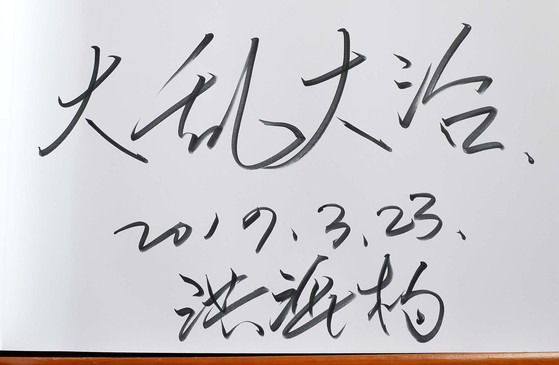 大乱大治.
2017.3.23.
洪準杓